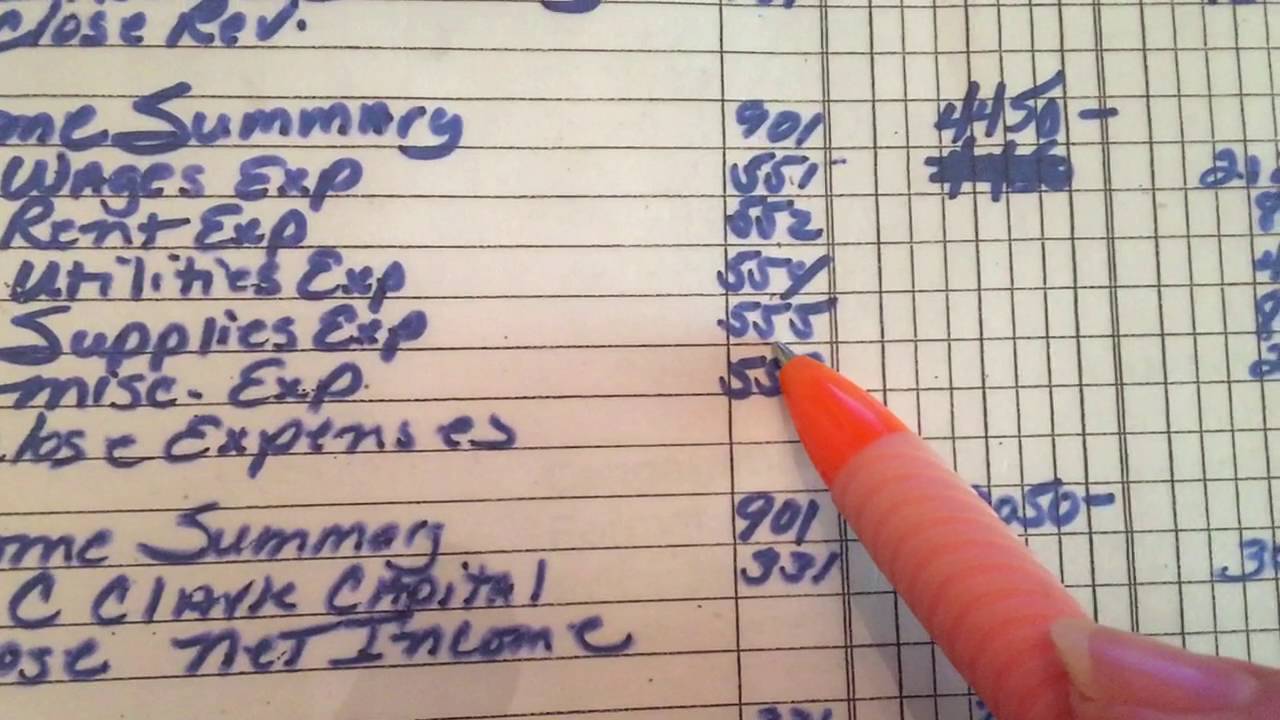 close Rev.
me Summary 901 4450-
Wages Exp 551
Rent Exp 552
Utilities Exp 554
Supplies Exp 555
misc. Exp
lose Expenses
ome Summary 901
C Clark Capital 331
ose net Income
331